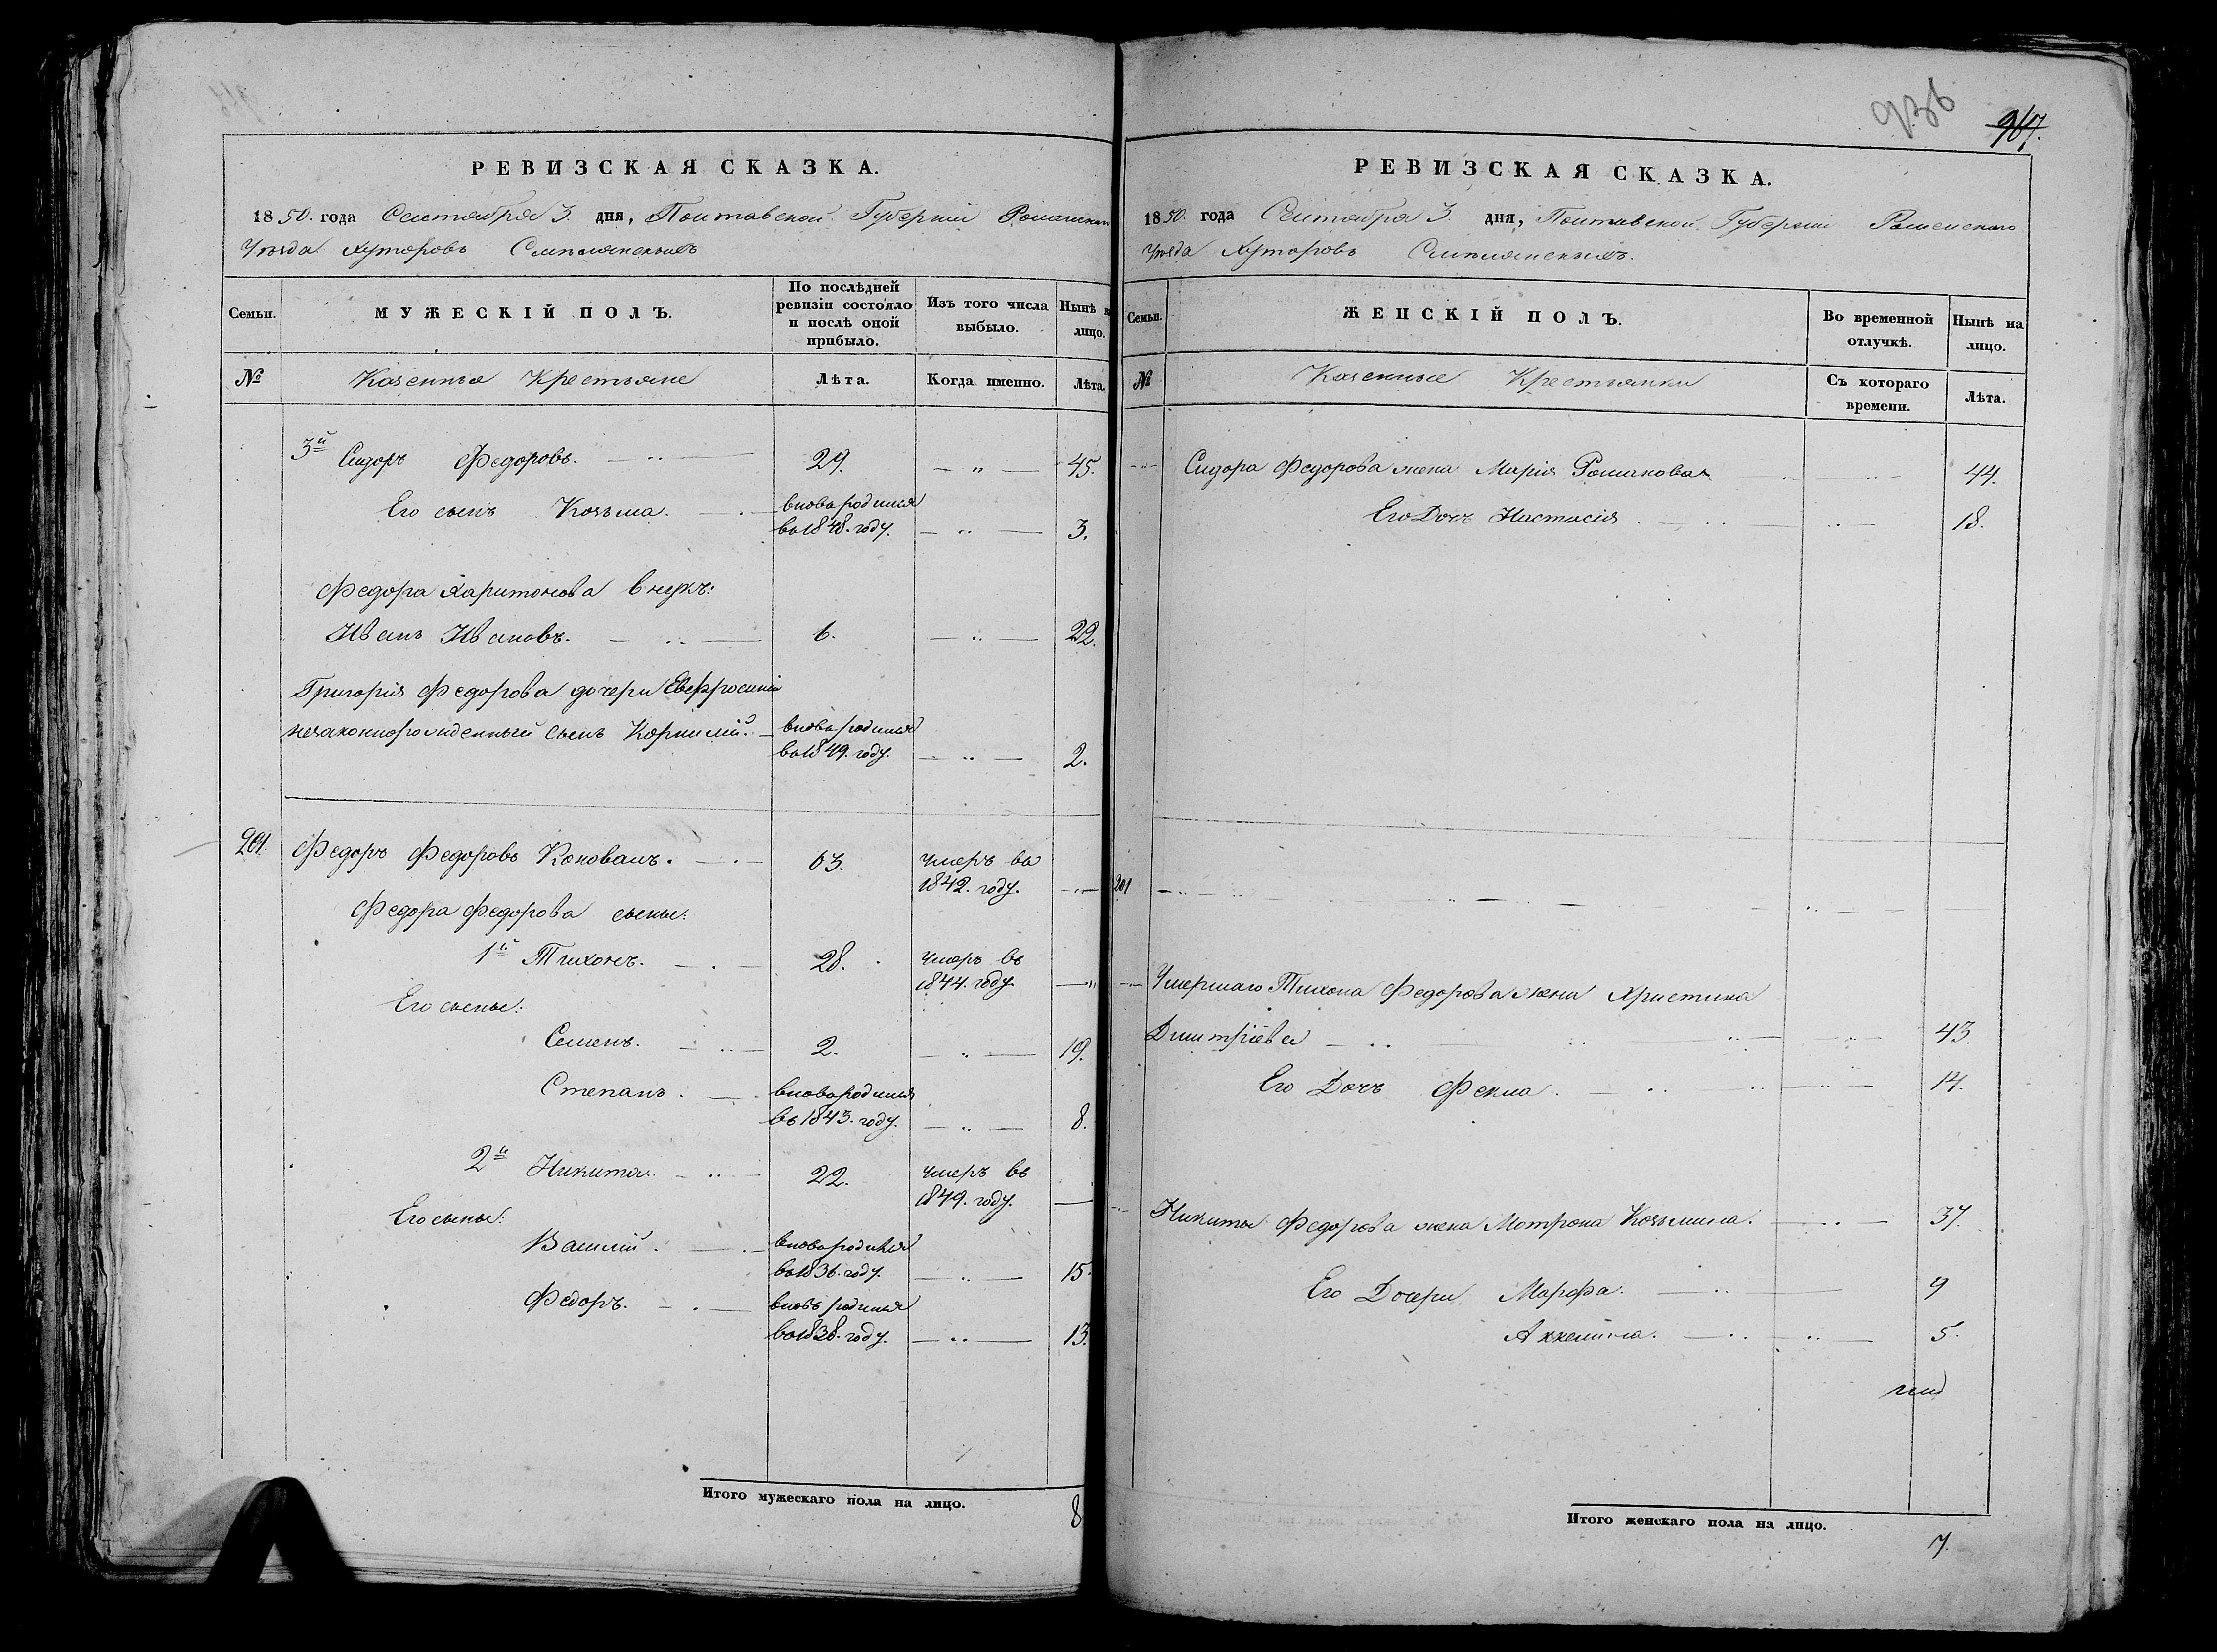 936
967.
РЕВИЗСКАЯ СКАЗКА.
1850. года Сентября 3. дня, Полтавской Губерніи Роменскаго
Уѣзда Хуторовъ
Семьи.
МУЖЕСКІЙ ПОЛЪ.
По послѣдней ревизіи состояло и послѣ оной прибыло.
Изъ того числа выбыло.
Нынѣ на лицо.
№
Казенные Крестьяне
Лѣта.
Когда именно.
Лѣта.
3й Сидоръ Федоровъ. 29. — " — 45.
Его сынъ Козьма. вновь родился
въ 1848. году. — " — 3.
Федора Харитонова внукъ:
Иванъ Ивановъ. — " — 6. — " — 22.
Григорія Федорова дочери Евфросиніи
незаконнорожденный сынъ Корнилій. вновь родился
въ 1849. году. — " — 2.
201. Федоръ Федоровъ Коновалъ. 63. умеръ въ
1842. году. — " —
Федора Федорова сыны:
1й Тихонъ. 28. умеръ въ
1844. году. — "
Его сыны:
Семенъ. 2. — " — 19.
Степанъ. вновь родился
въ 1843. году. — " — 8.
2й Никита. 22. умеръ въ
1849. году. —
Его сыны:
Василій. вновь родился
въ 1836. году. — " — 15.
Федоръ. вновь родился
въ 1838. году. — " — 13.
Итого мужескаго пола на лицо. 8
РЕВИЗСКАЯ СКАЗКА.
1850. года Сентября 3. дня, Полтавской Губерніи Роменскаго
Уѣзда Хуторовъ
Семьи.
ЖЕНСКІЙ ПОЛЪ.
Во временной отлучкѣ.
Нынѣ на лицо.
№
Казенные Крестьянки
Съ котораго времени.
Лѣта.
Сидора Федорова жена Марія Романова 44.
Его Дочь Настасія 18.
201
Умершаго Тихона Федорова жена Христина
Дмитріева 43.
Его Дочь Фекла. 14.
Никиты Федорова жена Мотрона Козьмина. 37.
Его Дочери Марфа. 9
Аккелина. 5.
Итого женскаго пола на лицо. 7.